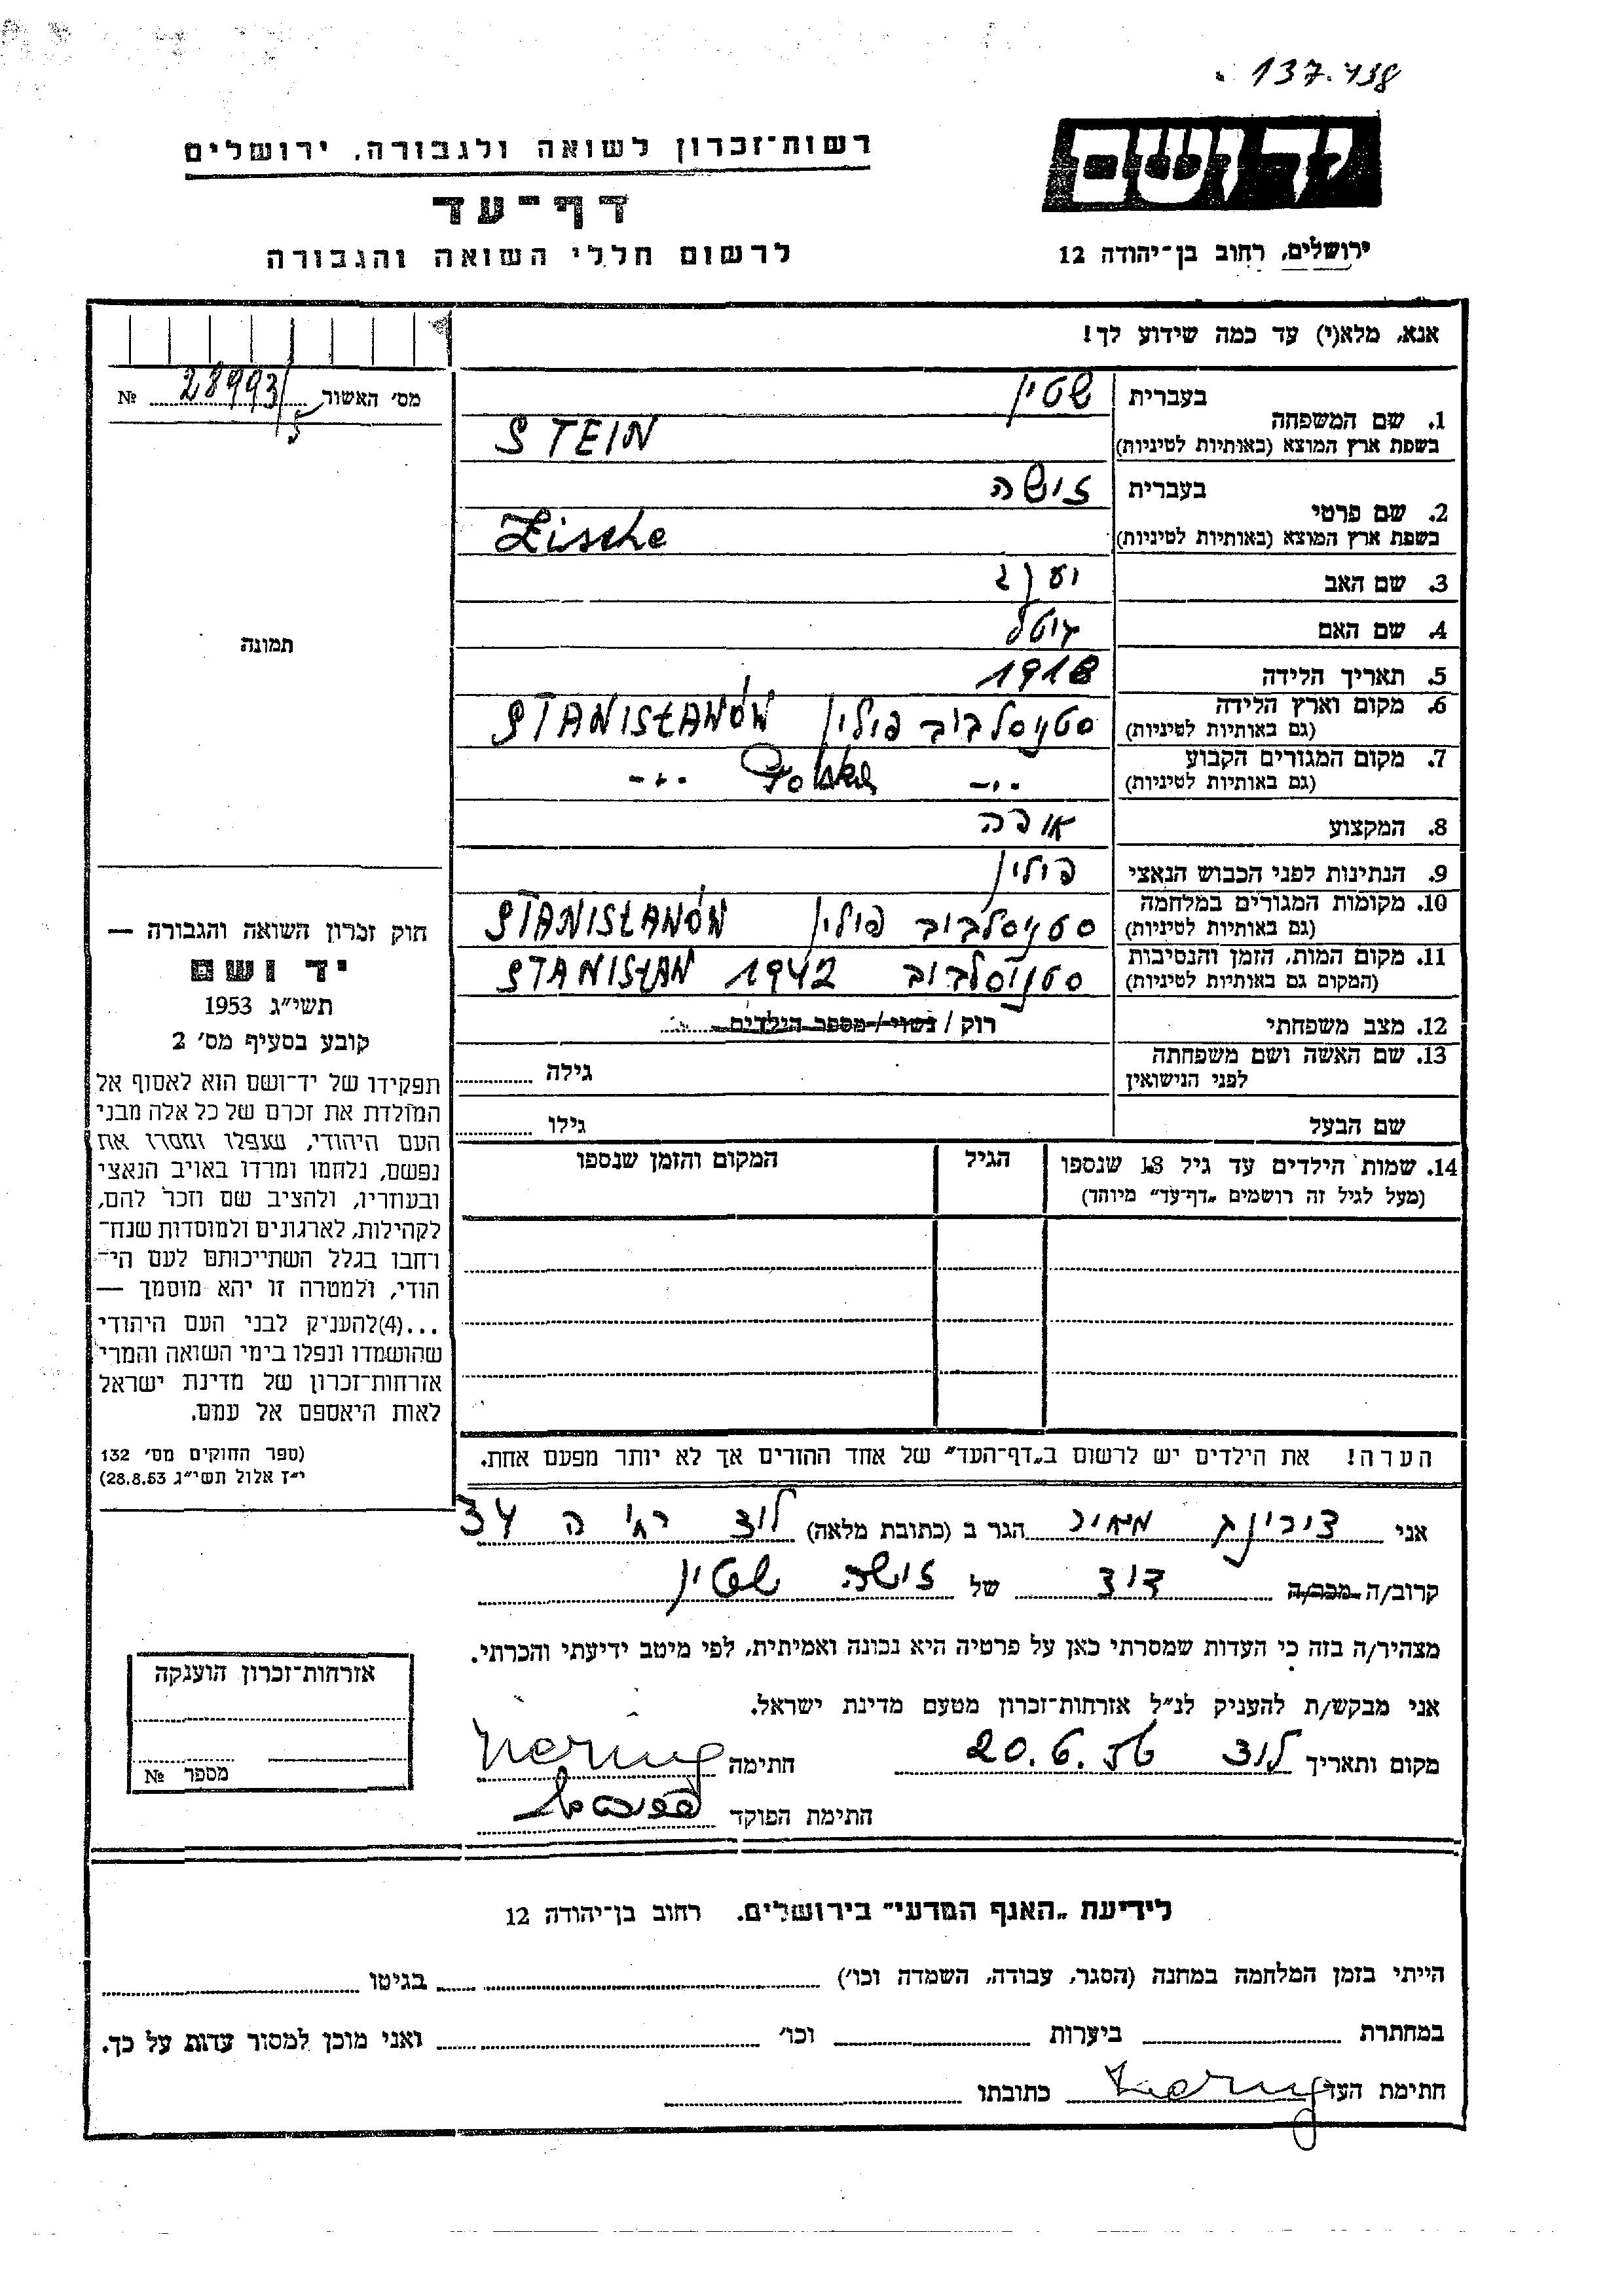 137.438
רשות־זכרון לשואה ולגבורה, ירושלים
יד ושם
דף־עד
לרשום חללי השואה והגבורה
ירושלים, רחוב בן־יהודה 12
אנא, מלא(י) עד כמה שידוע לך!
מס׳ האשור 28993/5 №
1. שם המשפחה בעברית שטיין
בשפת ארץ המוצא (באותיות לטיניות) STEIN
2. שם פרטי בעברית זישה
בשפת ארץ המוצא (באותיות לטיניות) Zische
3. שם האב
4. שם האם
5. תאריך הלידה 1918
6. מקום וארץ הלידה סטניסלבוב פולין STANISŁAWÓW
(גם באותיות לטיניות)
7. מקום המגורים הקבוע -"- Polska -"-
(גם באותיות לטיניות)
8. המקצוע אופה
9. הנתינות לפני הכבוש הנאצי פולין
10. מקומות המגורים במלחמה סטניסלבוב פולין STANISŁAWÓW
(גם באותיות לטיניות)
11. מקום המות, הזמן והנסיבות סטניסלבוב 1942 STANISŁAW
(המקום גם באותיות לטיניות)
12. מצב משפחתי רוק / נשוי / מספר הילדים
13. שם האשה ושם משפחתה גילה
לפני הנישואין
שם הבעל גילו
14. שמות הילדים עד גיל 18 שנספו הגיל המקום והזמן שנספו
(מעל לגיל זה רושמים „דף־עד״ מיוחד)
הערה! את הילדים יש לרשום ב„דף־העד״ של אחד ההורים אך לא יותר מפעם אחת.
תמונה
חוק זכרון השואה והגבורה —
יד ושם
תשי״ג 1953
קובע בסעיף מס׳ 2
תפקידו של יד־ושם הוא לאסוף אל
המולדת את זכרם של כל אלה מבני
העם היהודי, שנפלו ומסרו את
נפשם, נלחמו ומרדו באויב הנאצי
ובעוזריו, ולהציב שם וזכר להם,
לקהילות, לארגונים ולמוסדות שנח־
רחבו בגלל השתייכותם לעם הי־
הודי, ולמטרה זו יהא מוסמך —
...(4)להעניק לבני העם היהודי
שהושמדו ונפלו בימי השואה והמרי
אזרחות־זכרון של מדינת ישראל
לאות היאספם אל עמם.
(ספר החוקים מס׳ 132
י״ז אלול תשי״ג 28.8.53)
אני צירינג מאיר הגר ב (כתובת מלאה) לוד 34
קרוב/ה מכר/ה דוד של זישה שטיין
מצהיר/ה בזה כי העדות שמסרתי כאן על פרטיה היא נכונה ואמיתית, לפי מיטב ידיעתי והכרתי.
אני מבקש/ת להעניק לנ״ל אזרחות־זכרון מטעם מדינת ישראל.
מקום ותאריך לוד 20.6.56 חתימה
חתימת הפוקד
אזרחות־זכרון הוענקה
מספר №
לידיעת „האגף המדעי״ בירושלים. רחוב בן־יהודה 12
הייתי בזמן המלחמה במחנה (הסגר, עבודה, השמדה וכו׳) בגיטו
במחתרת ביערות וכו׳ ואני מוכן למסור עדות על כך.
חתימת העד כתובתו